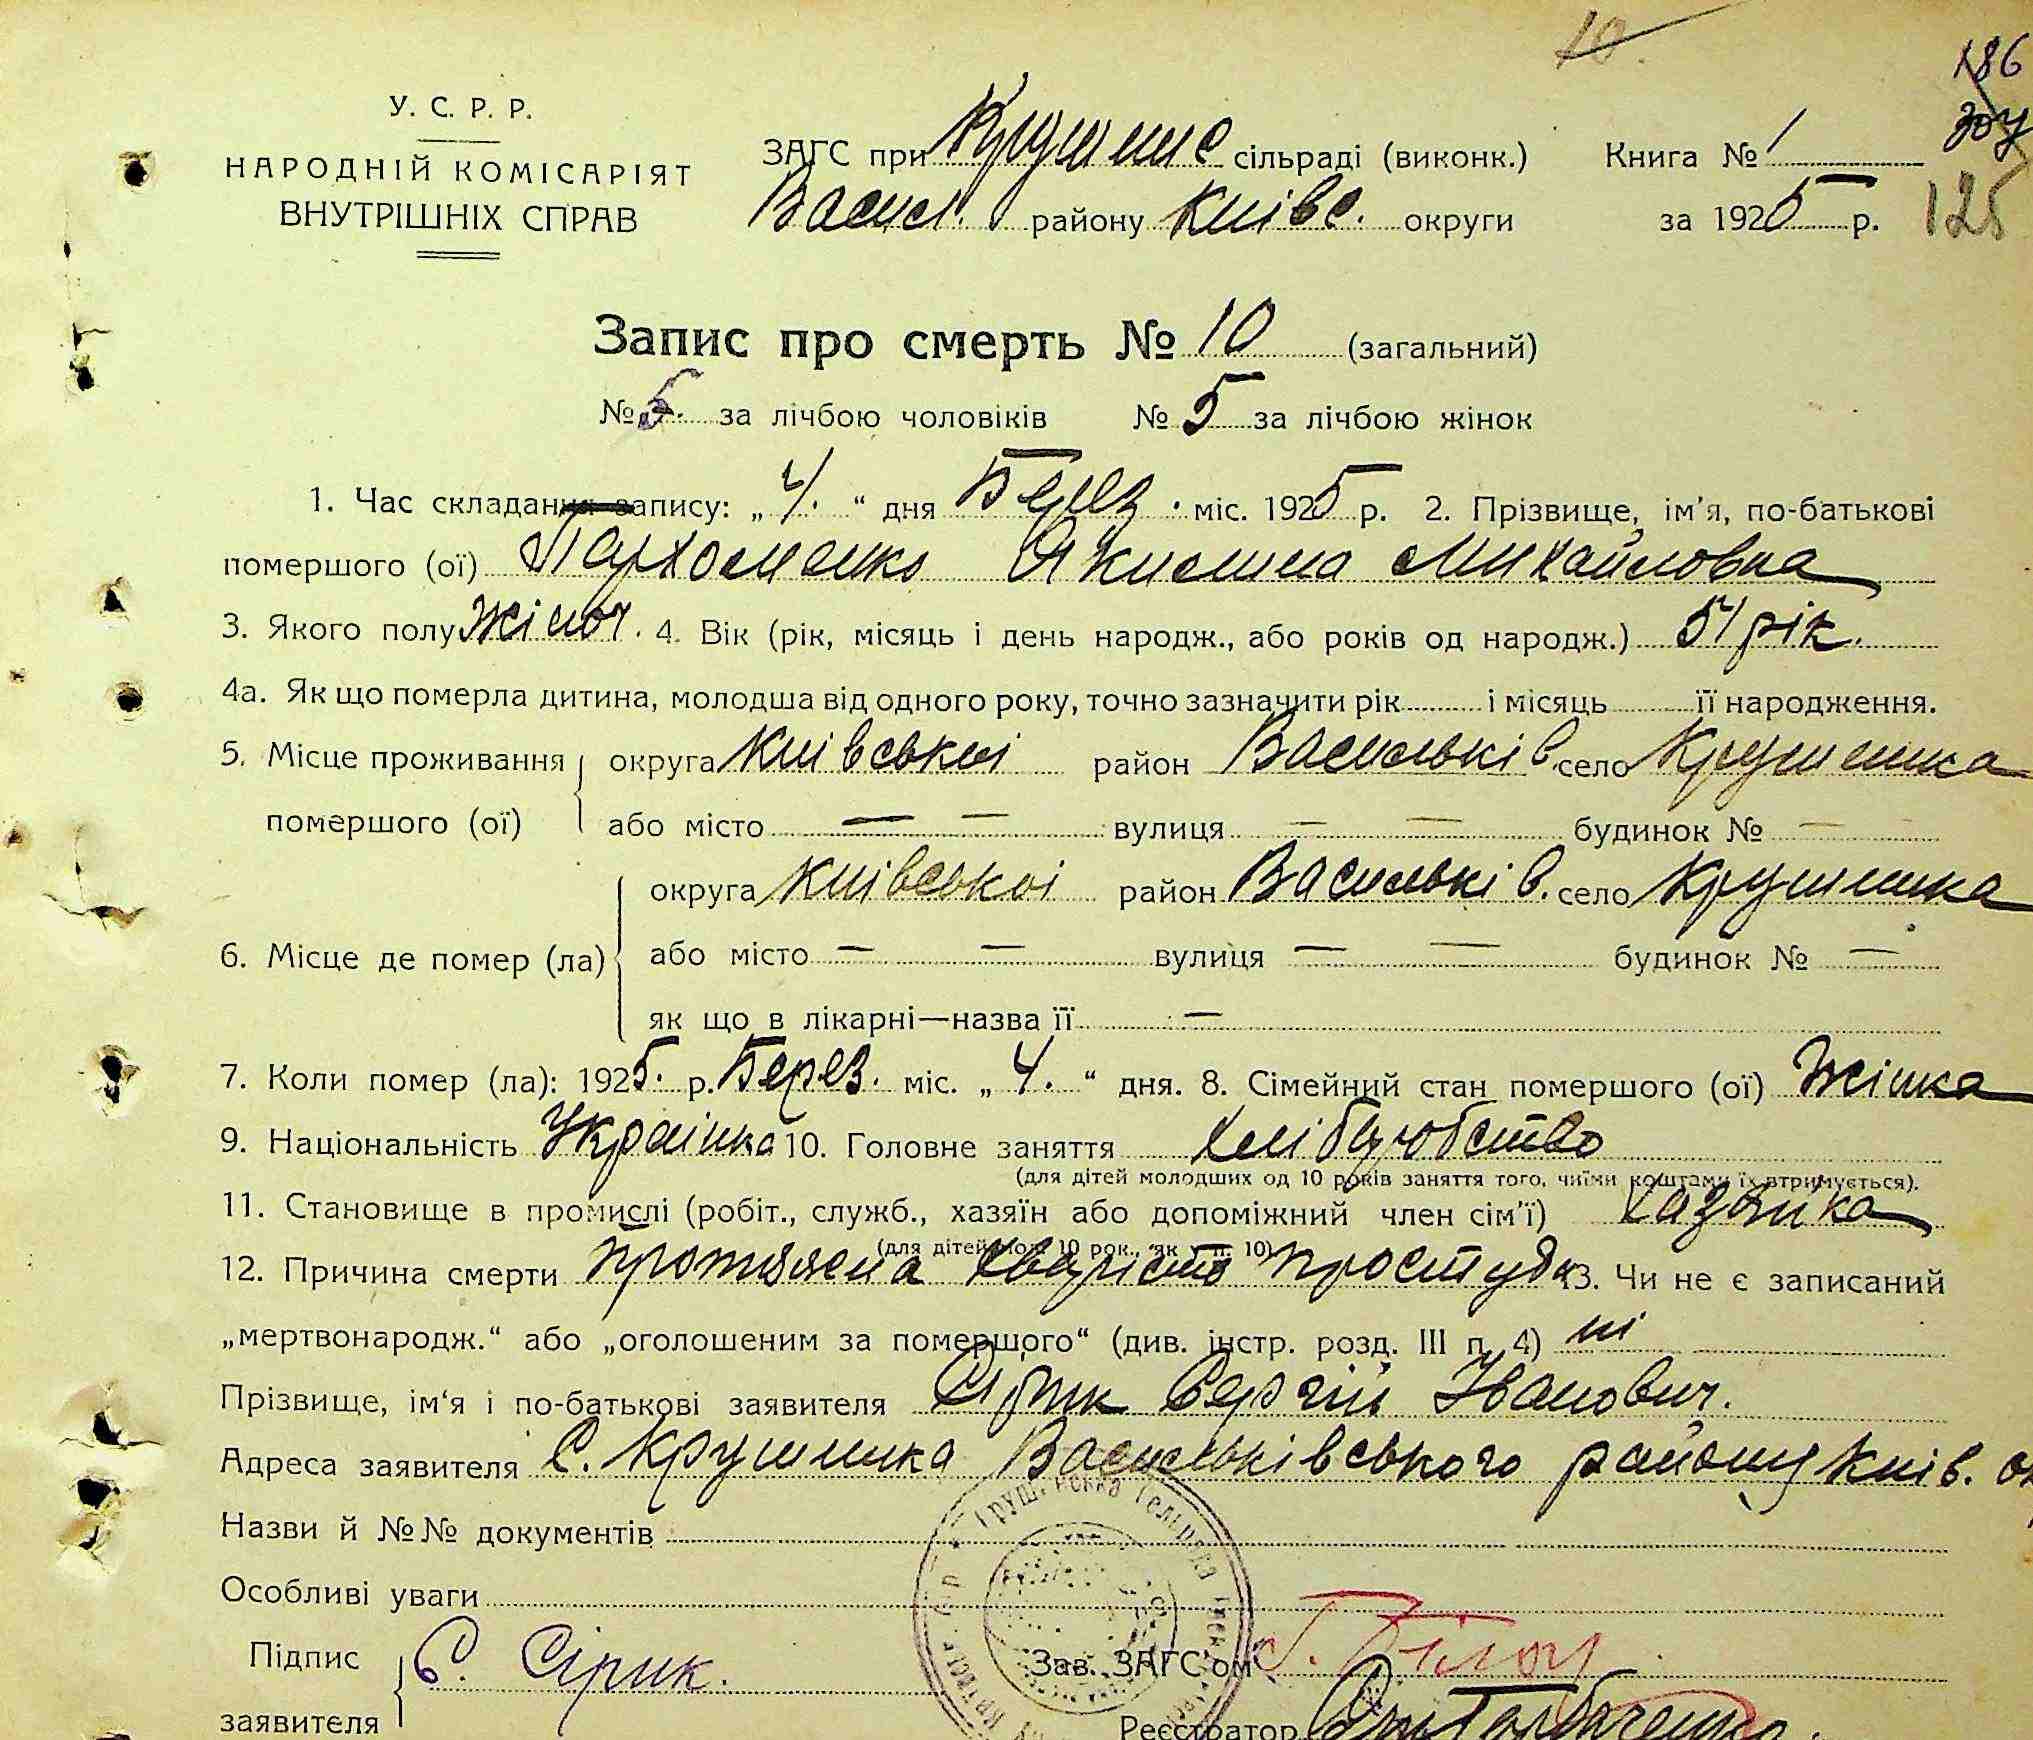 10.
186
У. С. Р. Р.
НАРОДНІЙ КОМІСАРІЯТ
ВНУТРІШНІХ СПРАВ
ЗАГС при Крушинс сільраді (виконк.) Книга № 1
Васил. району Київс. округи за 1925 р. 125
Запис про смерть № 10 (загальний)
№ 5. за лічбою чоловіків № 5 за лічбою жінок
1. Час складання запису: „4.“ дня Берез. міс. 1925 р. 2. Прізвище, ім'я, по-батькові
помершого (ої) Пархоменко Якилина Михайловна
3. Якого полу Жіноч. 4. Вік (рік, місяць і день народж., або років од народж.) 54 рік.
4а. Як що померла дитина, молодша від одного року, точно зазначити рік і місяць її народження.
5. Місце проживання округа Київської район Васильків. село Крушинка
помершого (ої) або місто — — вулиця — — будинок № —
округа Київської район Васильків. село Крушинка
6. Місце де помер (ла) або місто — — вулиця — — будинок № —
як що в лікарні—назва її —
7. Коли помер (ла): 1925. р. Берез. міс. „4.“ дня. 8. Сімейний стан помершого (ої) Жінка
9. Національність Українка 10. Головне заняття хліборобство
(для дітей молодших од 10 років заняття того, чиїми коштами їх втримується).
11. Становище в промислі (робіт., служб., хазяїн або допоміжний член сім'ї) хазяйка
(для дітей мол. 10 рок., як у п. 10)
12. Причина смерти простуда 13. Чи не є записаний
„мертвонародж.“ або „оголошеним за помершого“ (див. інстр. розд. III п. 4) ні
Прізвище, ім'я і по-батькові заявителя Сірик Сергій Іванович.
Адреса заявителя С. Крушинка Васильківського району Київ. ок
Назви й №№ документів
Особливі уваги
Підпис заявителя С. Сірик.
Зав. ЗАГС'ом
Реєстратор